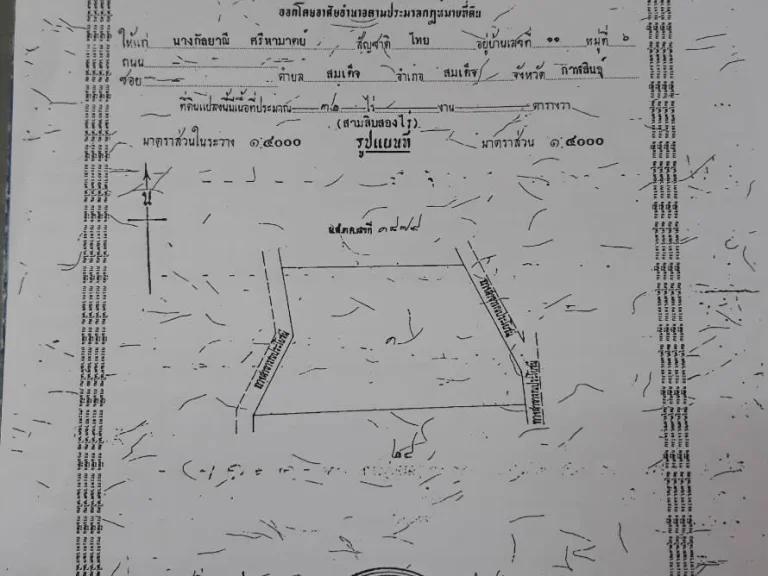 ออกโดยอาศัยอำนาจตามประมวลกฎหมายที่ดิน
ให้แก่ นางกัลยาณี ศรีหามาตย์ สัญชาติ ไทย อยู่บ้านเลขที่ ๑๑ หมู่ที่ ๖
ถนน
ซอย ตำบล สมเด็จ อำเภอ สมเด็จ จังหวัด กาฬสินธุ์
ที่ดินแปลงนี้มีเนื้อที่ประมาณ ๓๒ ไร่ งาน ตารางวา
(สามสิบสองไร่)
มาตราส่วนในระวาง ๑:๔๐๐๐ รูปแผนที่ มาตราส่วน ๑:๔๐๐๐
น
ทางสาธารณประโยชน์
ทางสาธารณประโยชน์
ทางสาธารณประโยชน์
๒๘